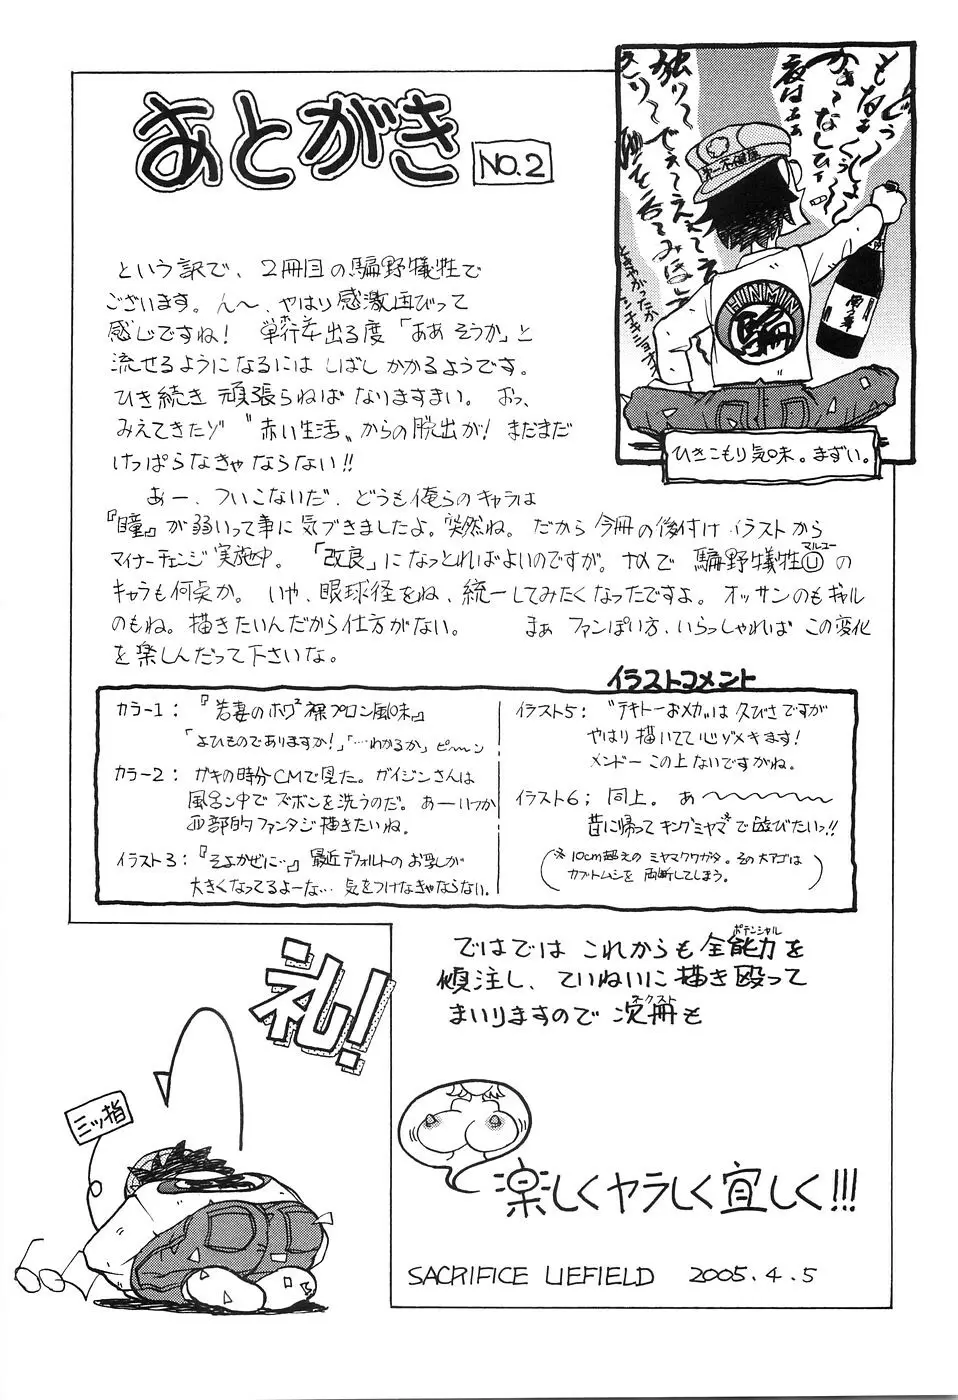 あとがき
NO.2
という訳で、2冊目の騙野犠牲で
ございます。ん〜、やはり感激由びって
感じですね! 単行本出る度「ああそうか」と
流せるようになるには しばしかかるようです。
ひき続き 頑張らねば なりますまい。おっ、
みえてきたゾ〝赤い生活〟からの脱出が! まだまだ
けっぱらなきゃならない!!
あー、ついこないだ、どうも俺らのキャラは
『瞳』が弱いって事に気づきましたよ。突然ね。だから今冊の後付けイラストから
マイナーチェンジ実施中。「改良」になっとればよいのですが。なんで 騙野犠牲Ⓤの
マルユー
キャラも何点か。いや、眼球径をね、統一してみたくなったですよ。オッサンのもギャル
のもね。描きたいんだから仕方がない。 まぁ ファンぽい方、いらっしゃれば この変化
を楽しんだって下さいな。
第一不健康
HINMIN
騙
ひきこもり気味。まずい。
イラストコメント
カラー1: 『若妻のホワ²裸プロン風味』
「よびものでありますか!」「…わかるか」ピーン
カラー2: ガキの時分CMで見た。ガイジンさんは
風呂ン中で ズボンを洗うのだ。あーいつか
西部的ファンタジ描きたいね。
イラスト3:『そよかぜに…』最近デフォルトのお乳が
大きくなってるよーな… 気をつけなきゃならない。
イラスト5: 〝テキトーおメカ〟は久びさですが
やはり描いてて心ゾメキます!
メンドー この上ないですがね。
イラスト6; 同上。あ〜〜〜〜〜
昔に帰って キングミヤマ※で遊びたいっ!!
(※ 10cm超えの ミヤマクワガタ。その大アゴは
カブトムシを 両断してしまう。)
ではでは これからも 全能力を
ポテンシャル
傾注し、ていねいに描き殴って
まいりますので 次冊も
ネクスト
礼!
三ッ指
楽しくヤラしく宜しく!!!
SACRIFICE LIEFIELD 2005.4.5